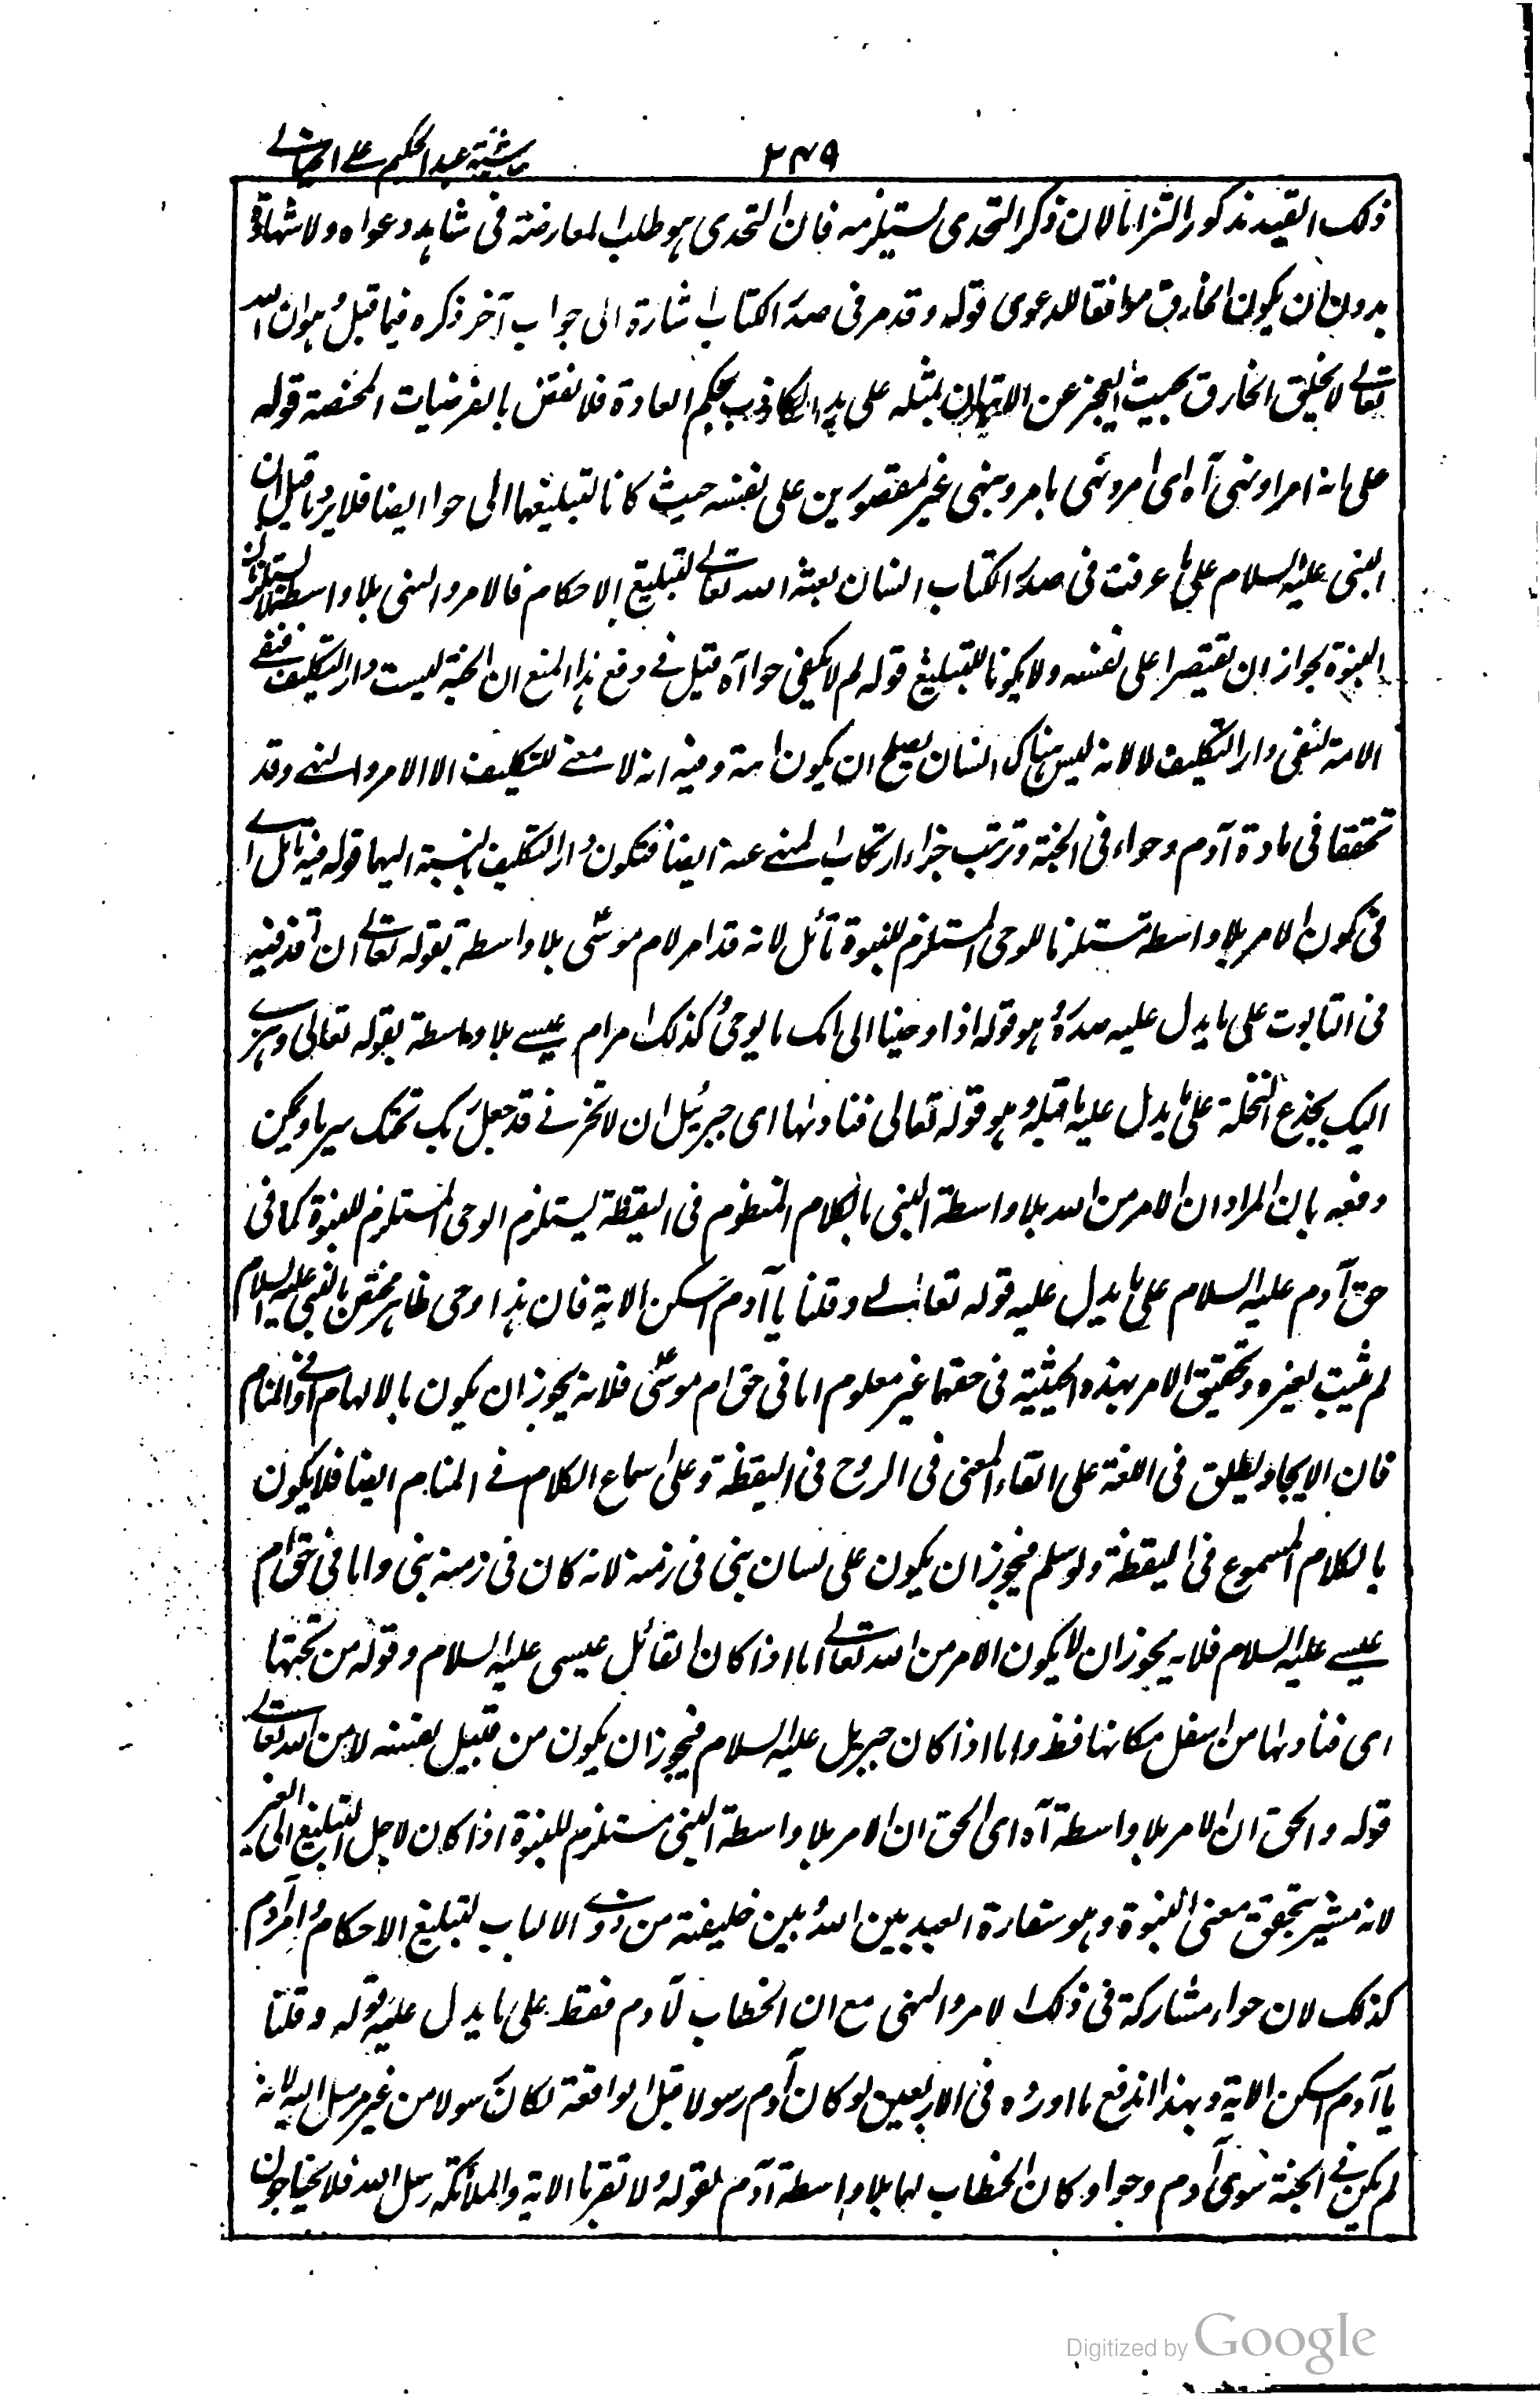 حاشية عبد الحكيم على الخيالى
٢٧٩
ذلك القيد مذكورا التزاما لان ذكر التحدى يستلزمه فان التحدى هو طلب المعارضة فى شاهد دعواه ولا شهادة
بدون ان يكون الخارق موافقا للدعوى قوله وقد مر فى صدر الكتاب اشارة الى جواب آخر ذكره فيما قبل وهو ان الله
تعالى لا يخلق الخارق بحيث يعجز عن الاتيان بمثله على يد الكاذب بحكم العادة فلا نقض بالفرضيات المحضة قوله
على انه امر ونهى آه اى امر ونهى بامر ونهى غير مقصورين على نفسه حيث كانا لتبليغهما الى حوا ايضا فلا يرد ما قيل ان
النبى عليه السلام على ما عرفت فى صدر الكتاب انسان بعثه الله تعالى لتبليغ الاحكام فالامر والنهى بلا واسطة لا يستلزمان
النبوة بجواز ان يقتصرا على نفسه ولا يكونا للتبليغ قوله لم لا يكفى حوا آه قيل فى دفع هذا المنع ان الجنة ليست دار التكليف فنفى
الامة لنفى دار التكليف لا لانه ليس هناك انسان يصلح ان يكون امة وفيه انه لا معنى للتكليف الا الامر والنهى وقد
تحققا فى مادة آدم وحواء فى الجنة وترتب جزاء ارتكاب المنهى عنه ايضا فتكون دار التكليف بالنسبة اليهما قوله فيه تامل اى
فى كون الامر بلا واسطة مستلزما للوحى المستلزم للنبوة تأمل لانه قد امر لام موسى بلا واسطة بقوله تعالى ان اقذفيه
فى التابوت على ما يدل عليه صدره وهو قوله اذ اوحينا الى امك ما يوحى وكذلك امر ام عيسى بلا واسطة بقوله تعالى وهزى
اليك بجذع النخلة على ما يدل عليه ما قبله وهو قوله تعالى فنادىها اى جبرئيل ان لا تحزنى قد جعل ربك تحتك سريا ويمكن
دفعه بان المراد ان الامر من الله بلا واسطة النبى بالكلام المنظوم فى اليقظة يستلزم الوحى المستلزم للنبوة كما فى
حق آدم عليه السلام على ما يدل عليه قوله تعالى وقلنا يا آدم اسكن الاية فان هذا وحى ظاهر مختص بالنبى عليه السلام
لم يثبت لغيره وتحقيق الامر بهذه الحيثية فى حقهما غير معلوم اما فى حق ام موسى فلانه يجوز ان يكون بالالهام او فى المنام
فان الايحاء يطلق فى اللغة على القاء المعنى فى الروح فى اليقظة وعلى اسماع الكلام فى المنام ايضا فلا يكون
بالكلام المسموع فى اليقظة ولو سلم فيجوز ان يكون على لسان نبى فى زمنه لانه كان فى زمنه نبى واما فى حق ام
عيسى عليه السلام فلانه يجوز ان لا يكون الامر من الله تعالى اما اذا كان القائل عيسى عليه السلام وقوله من تحتها
اى فنادىها من اسفل مكانها فظ واما اذا كان جبريل عليه السلام فيجوز ان يكون من قبيل نفسه لا من الله تعالى
قوله والحق ان الامر بلا واسطة آه اى الحق ان الامر بلا واسطة النبى مستلزم للنبوة اذا كان لاجل التبليغ الى الغير
لانه مشير بتحقق معنى النبوة وهو سفارة العبد بين الله وبين خليقته من ذوى الالباب لتبليغ الاحكام وامر آدم
كذلك لان حواء مشاركة فى ذلك الامر والنهى مع ان الخطاب لآدم فقط على ما يدل عليه قوله وقلنا
يا آدم اسكن الاية وبهذا اندفع ما اورده فى الاربعين لو كان آدم رسولا قبل الواقعة لكان رسولا من غير مرسل اليه لانه
لم يكن فى الجنة سوى آدم وحوا وكان الخطاب لهما بلا واسطة آدم لقوله ولا تقربا الاية والملائكة رسل الله فلا يحتاجون
Digitized by Google